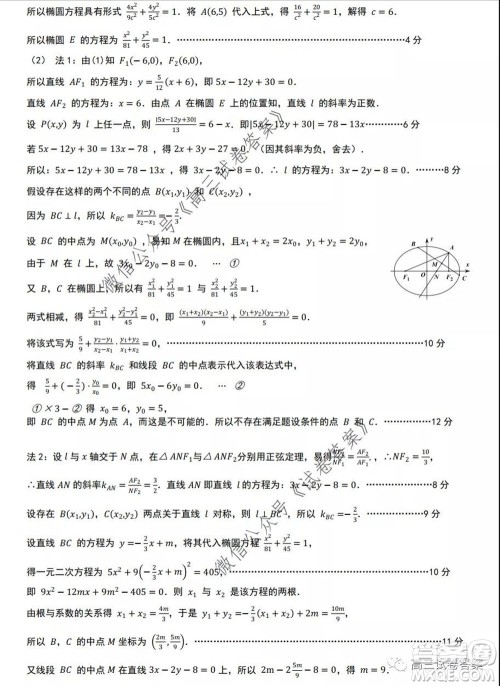 所以椭圆方程具有形式 4x²/9c² + 4y²/5c² = 1. 将 A(6,5) 代入上式, 得 16/c² + 20/c² = 1, 解得 c = 6.
所以椭圆 E 的方程为 x²/81 + y²/45 = 1. ……………4分
(2) 法1: 由(1)知 F₁(-6,0), F₂(6,0),
所以直线 AF₁ 的方程为: y = 5/12 (x + 6), 即 5x - 12y + 30 = 0.
直线 AF₂ 的方程为: x = 6. 由点 A 在椭圆 E 上的位置知, 直线 l 的斜率为正数.
设 P(x,y) 为 l 上任一点, 则 |5x-12y+30|/13 = 6 - x. 即|5x - 12y + 30| = 78 - 13x ……………6分
若 5x - 12y + 30 = 13x - 78 , 得 2x + 3y - 27 = 0. (因其斜率为负, 舍去).
所以: 5x - 12y + 30 = 78 - 13x , 得 3x - 2y - 8 = 0. ∴ l 的方程为: 3x - 2y - 8 = 0. ………8分
假设存在这样的两个不同的点 B(x₁,y₁) 和 C(x₂,y₂) ,
因为 BC ⊥ l, 所以 k_BC = (y₂-y₁)/(x₂-x₁) = -2/3.
设 BC 的中点为 M(x₀,y₀) , 易知 M 在椭圆内, 且x₁ + x₂ = 2x₀, y₁ + y₂ = 2y₀,
由于 M 在 l 上, 故 3x₀ - 2y₀ - 8 = 0. … ①
又 B, C 在椭圆上, 所以有 x₁²/81 + y₁²/45 = 1 与 x₂²/81 + y₂²/45 = 1.
两式相减, 得 (x₂²-x₁²)/81 + (y₂²-y₁²)/45 = 0, 即 (x₁+x₂)(x₂-x₁)/9 + (y₁+y₂)(y₂-y₁)/5 = 0,
将该式写为 5/9 + (y₂-y₁)/(x₂-x₁) · (y₁+y₂)/(x₁+x₂) = 0 ……………10分
将直线 BC 的斜率 k_BC 和线段 BC 的中点表示代入该表达式中,
得 5/9 + (-2/3) · y₀/x₀ = 0, 即 5x₀ - 6y₀ = 0. … ②
①×3-② 得 x₀ = 6, y₀ = 5,
即 BC 的中点 M 为点 A, 而这是不可能的. 所以不存在满足题设条件的点 B 和 C. ………12分
法2: 设 l 与 x 轴交于 N 点, 在△ANF₁与△ANF₂分别用正弦定理, 易得 NF₂/NF₁ = AF₂/AF₁, ∴ NF₂ = 10/3,
∴直线 AN 的斜率k_AN = AF₂/NF₂ = 3/2. 直线 AN 即直线 l 的方程为: 3x - 2y - 8 = 0. ……………8分
设存在 B(x₁,y₁), C(x₂,y₂) 两点关于直线 l 对称, 则 l ⊥ BC , 所以 k_BC = -2/3. ……………9分
设直线 BC 的方程为 y = -2/3 x + m, 将其代入椭圆方程 x²/81 + y²/45 = 1,
得一元二次方程 5x² + 9(-2/3 x + m)² = 405, ……………10分
即 9x² - 12mx + 9m² - 405 = 0. 则 x₁ 与 x₂ 是该方程的两根.
由根与系数的关系得 x₁ + x₂ = 4m/3, 于是 y₁ + y₂ = -2/3(x₁ + x₂) + 2m = 10m/9,
所以 B, C 的中点 M 坐标为 (2m/3, 5m/9). ……………11分
又线段 BC 的中点 M 在直线 3x - 2y - 8 = 0 上, 所以 2m - 2·5m/9 - 8 = 0, 得 m = 9.
y
A
M
F₁
O
N
F₂
C
x
B
微信公众号《高三试卷答案》
微信公众号《试卷答案》
高三试卷答案